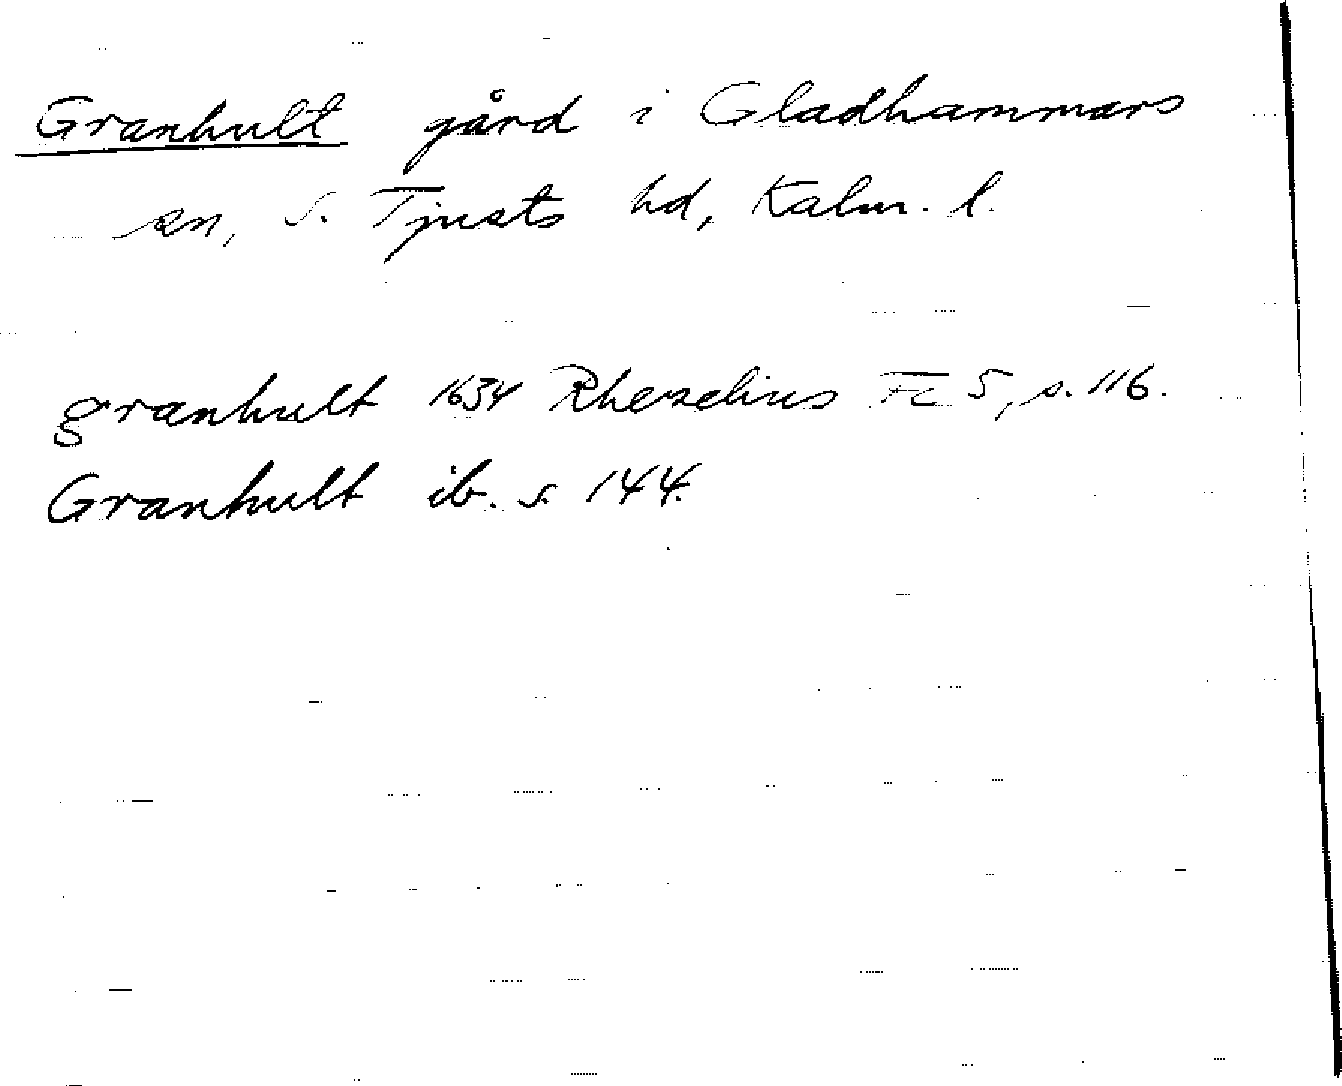 Granhult gård i Gladhammars
sn, S. Tjusts hd, Kalm. l.
granhult 1634 Rhezelius Fc 5, s. 116.
Granhult ib. s. 144.